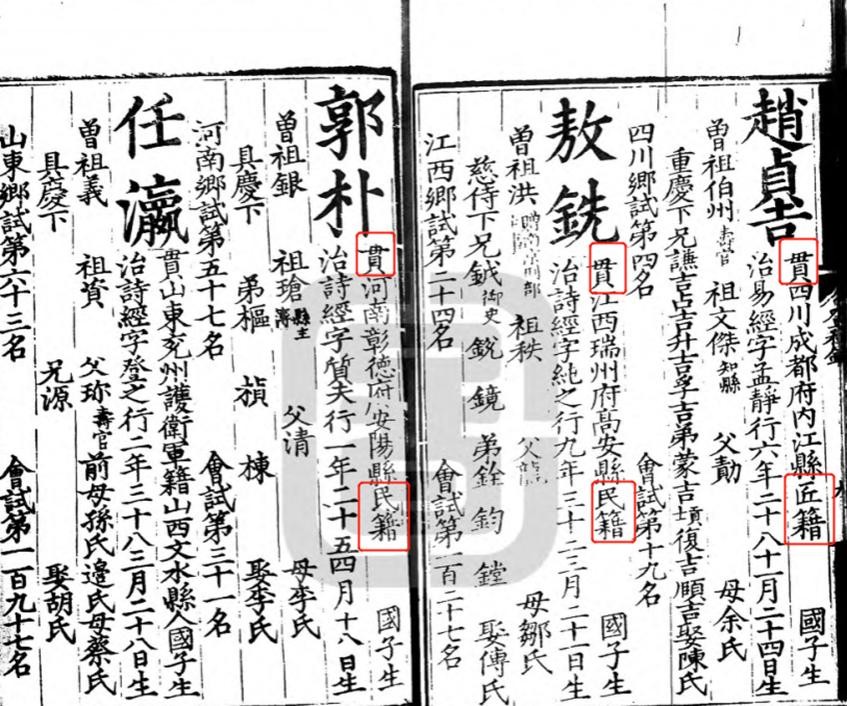 趙貞吉
貫四川成都府內江縣匠籍 國子生
治易經字孟靜行六年二十八十一月二十四日生
曾祖伯州壽官 祖文傑知縣 父勣 母余氏
重慶下兄譓吉占吉升吉孚吉弟蒙吉頤復吉順吉娶陳氏
四川鄉試第四名 會試第十九名
敖銑
貫江西瑞州府高安縣民籍 國子生
治詩經字純之行九年三十三三月二十一日生
曾祖洪 祖秩 父 母鄒氏
慈侍下兄鉞御史 銳 鏡 弟銓 鈞 鏜 娶傅氏
江西鄉試第二十四名 會試第一百二十七名
郭朴
貫河南彰德府安陽縣民籍 國子生
治詩經字質夫行一年二十五四月十八日生
曾祖銀 祖瑲縣主簿 父清 母李氏
具慶下 弟樞 楨 棟 娶李氏
河南鄉試第五十七名 會試第三十一名
任瀛
貫山東兗州護衛軍籍山西文水縣人國子生
治詩經字登之行二年三十八三月二十八日生
曾祖義 祖蕡 父珎壽官 前母孫氏邉氏母蔡氏
具慶下 兄源 娶胡氏
山東鄉試第六十三名 會試第一百九十七名